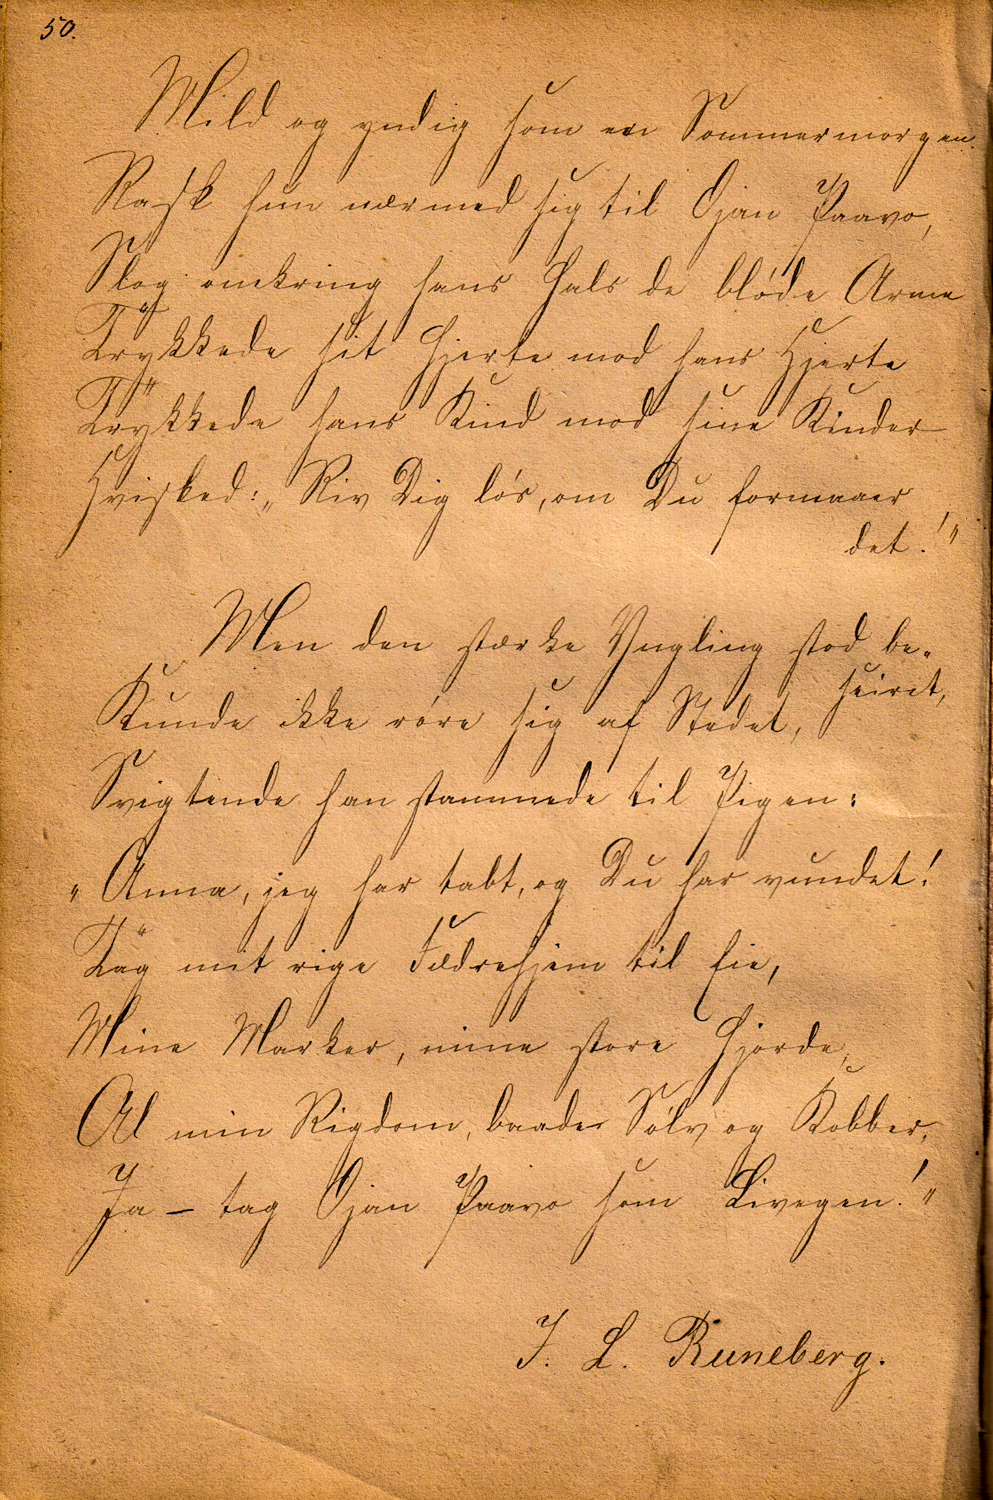 50.
Mild og yndig som en Sommermorgen
Rask hun nærmed sig til Ojan Paavo,
Slog omkring hans Hals de bløde Arme
Trykkede sit Hjerte mod hans Hjerte
Trykkede hans Kind mod sine Kinder
Hvisked: „Riv Dig løs, om Du formaaer
det!"
Men den stærke Yngling stod be-
seiret,
Kunde ikke røre sig af Stedet,
Svigtende han stammede til Pigen:
„Anna, jeg har tabt, og Du har vundet!
Tag mit rige Fædrehjem til Eie,
Mine Marker, mine store Hjorde,
Al min Rigdom, baade Sølv og Kobber,
Ja — tag Ojan Paavo som Livegen!"
J. L. Runeberg.